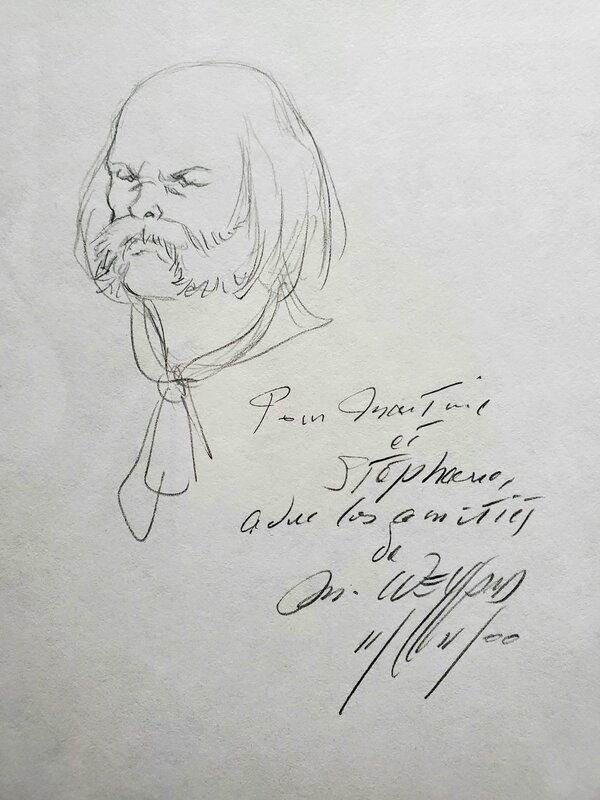 Pour Martine
et
Stéphane,
avec les amitiés
de
M. WEYLAND
11/11/00